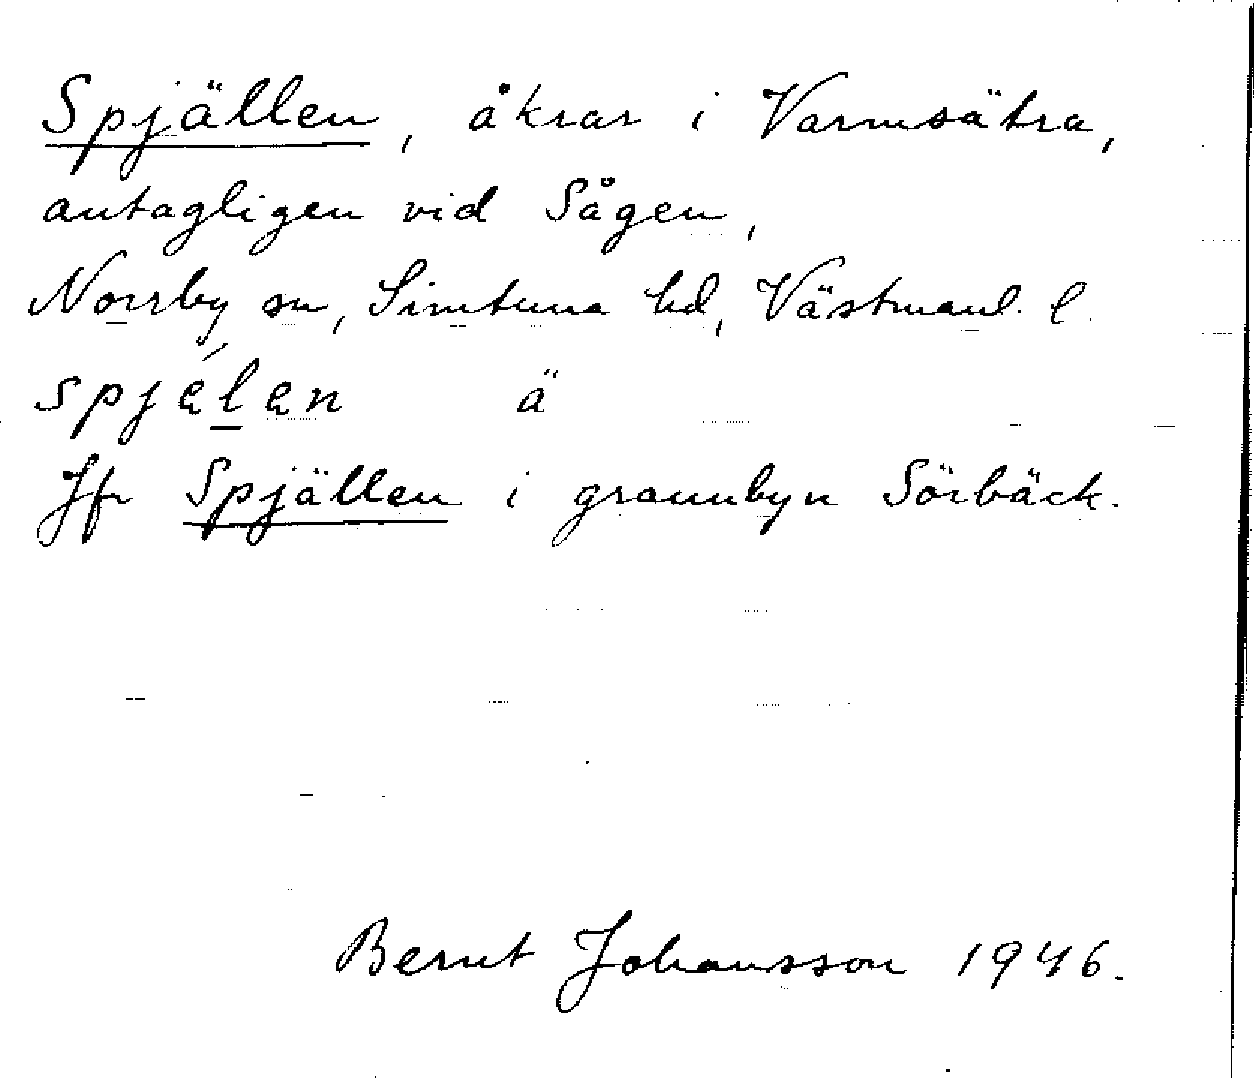 Spjällen, åkrar i Varmsätra,
antagligen vid Sågen,
Norrby sn, Simtuna hd, Västmanl. l.
spjęlęn ä
Jfr Spjällen i grannbyn Sörbäck.
Bernt Johansson 1946.